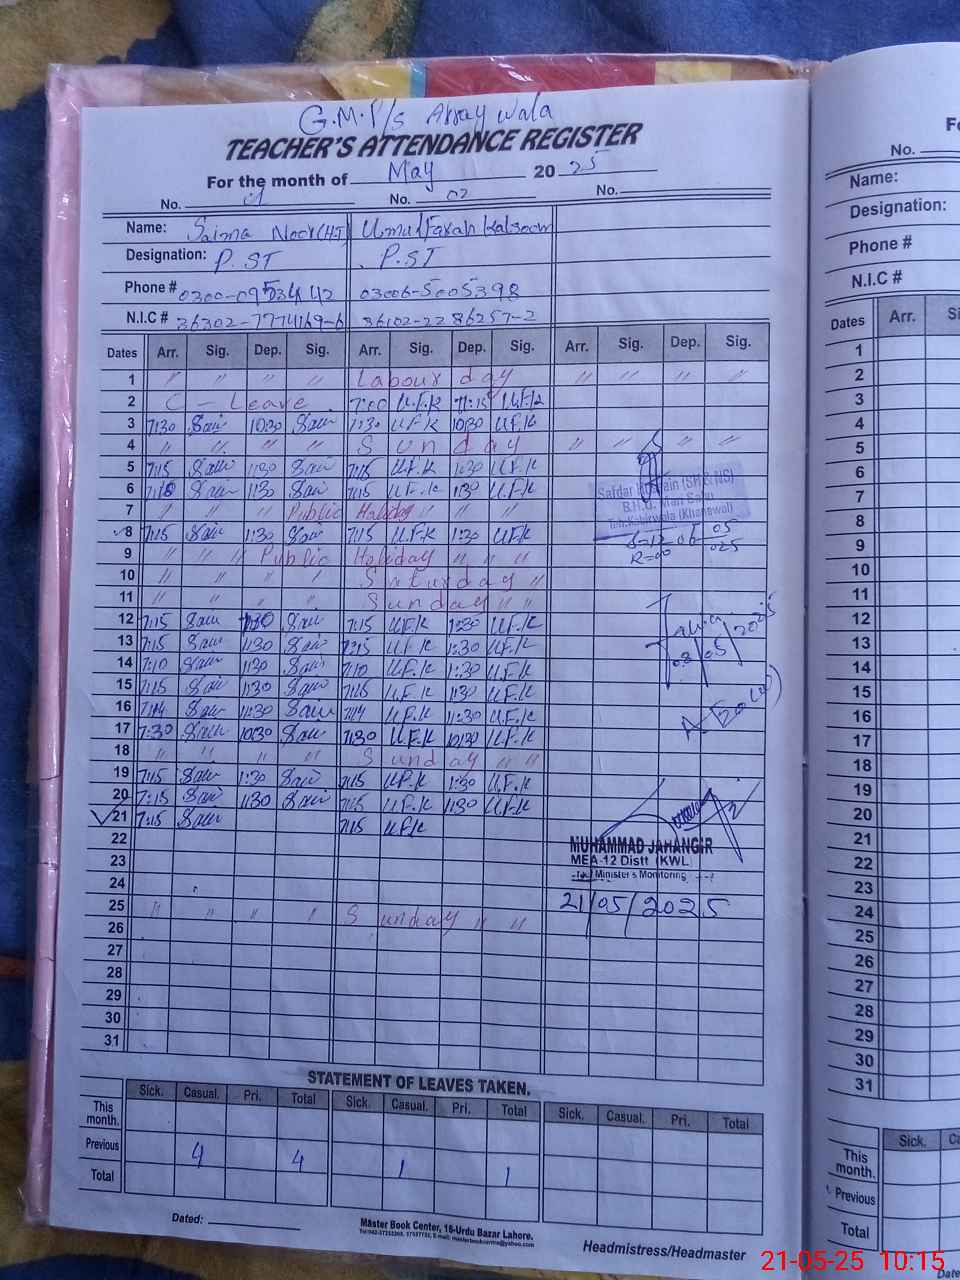 G.M.P/s Array wala
TEACHER'S ATTENDANCE REGISTER
For the month of May 2025
No. 01 No. 02 No.
Name: Saima Noor (HT) Ummul Farah Kalsoom
Designation: P.ST P.ST
Phone # 03006-5005398
N.I.C # 36302-7774169-6 36102-2286257-2
Dates Arr. Sig. Dep. Sig. Arr. Sig. Dep. Sig. Arr. Sig. Dep. Sig.
1 " " " " Labour day " " " "
2 C - Leave 7:00 U.F.K 11:15 U.F.K
3 7:30 Sain 10:30 Sain 7:30 U.F.K 10:30 U.F.K
4 " " " " Sunday " " " "
5 7:15 Sain 1:30 Sain 7:15 U.F.K 1:30 U.F.K
6 Sain 1:30 Sain 7:15 U.F.K 1:30 U.F.K
7 " " " Public Holiday " " "
8 7:15 Sain 1:30 Sain 7:15 U.F.K 1:30 U.F.K
9 " " " Public Holiday " " "
10 " " " " Saturday "
11 " " " " Sunday " "
12 7:15 Sain Sain 7:15 U.F.K 1:30 U.F.K
13 7:15 Sain 1:30 Sain 7:15 U.F.K 1:30 U.F.K
14 7:10 Sain 1:30 Sain 7:10 U.F.K 1:30 U.F.K
15 7:15 Sain 1:30 Sain 7:15 U.F.K 1:30 U.F.K
16 7:14 Sain 11:30 Sain 7:14 U.F.K 11:30 U.F.K
17 7:30 Sain 10:30 Sain 7:30 U.F.K 10:30 U.F.K
18 " " " " Sunday " "
19 7:15 Sain 1:30 Sain 7:15 U.F.K 1:30 U.F.K
20 7:15 Sain 1:30 Sain 7:15 U.F.K 1:30 U.F.K
21 7:15 Sain 7:15 U.F.K
22
23
24
25 " " " " Sunday " "
26
27
28
29
30
31
Safdar Hussain (SH & NS)
Teh. Kabirwala (Khanewal)
R=00
A-E
MUHAMMAD JAHANGIR
MEA-12 Distt (KWL)
Minister's Monitoring
21/05/2025
STATEMENT OF LEAVES TAKEN.
Sick. Casual. Pri. Total Sick. Casual. Pri. Total Sick. Casual. Pri. Total
This month.
Previous 4 4 1 1
Total
Dated:
Master Book Center, 16-Urdu Bazar Lahore.
Headmistress/Headmaster
No.
Name:
Designation:
Phone #
N.I.C #
Dates Arr.
1
2
3
4
5
6
7
8
9
10
11
12
13
14
15
16
17
18
19
20
21
22
23
24
25
26
27
28
29
30
31
Sick.
This month.
Previous
Total
21-05-25 10:15